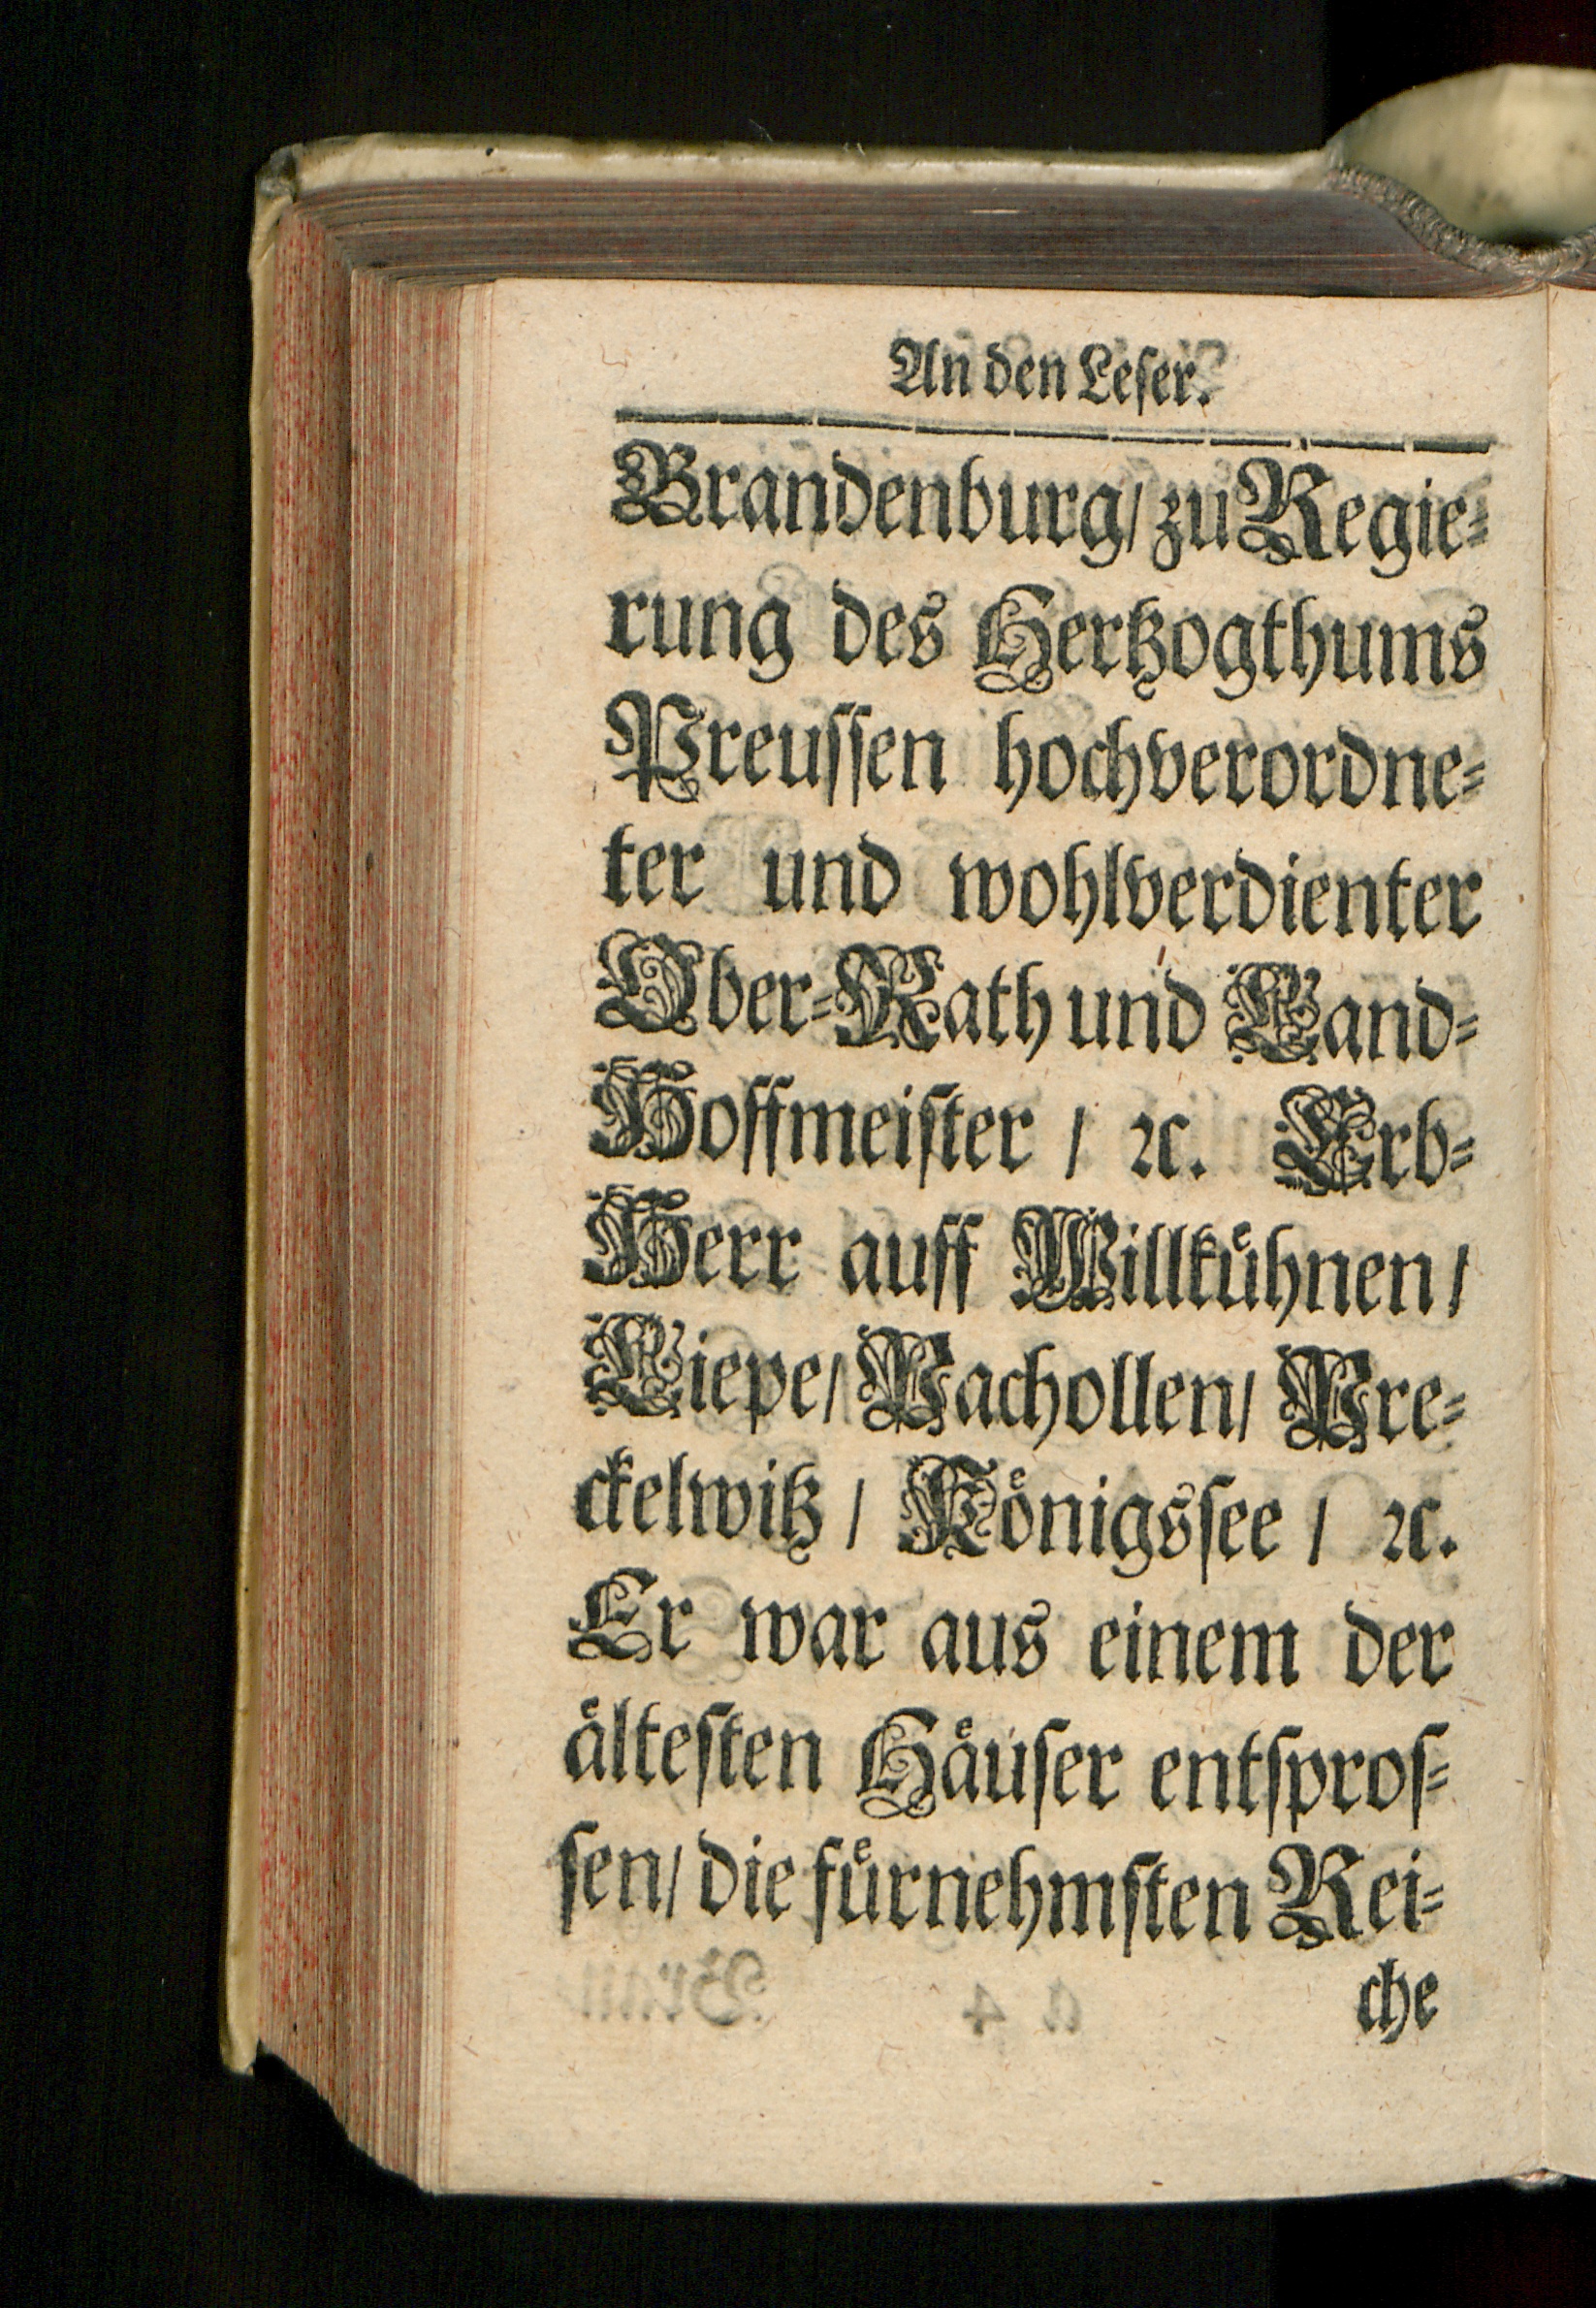 An den Leſer.
Brandenburg/ zu Regie⸗
rung des Hertzogthums
Preuſſen hochverordne⸗
ter und wohlverdienter
Ober⸗Rath und Land⸗
Hoffmeiſter / ꝛc. Erb⸗
Herr auff Willkuͤhnen/
Liepe/ Pachollen/ Pre⸗
ckelwitz / Koͤnigsſee / ꝛc.
Er war aus einem der
aͤlteſten Haͤuſer entſproſ⸗
ſen/ die fuͤrnehmſten Rei⸗
che